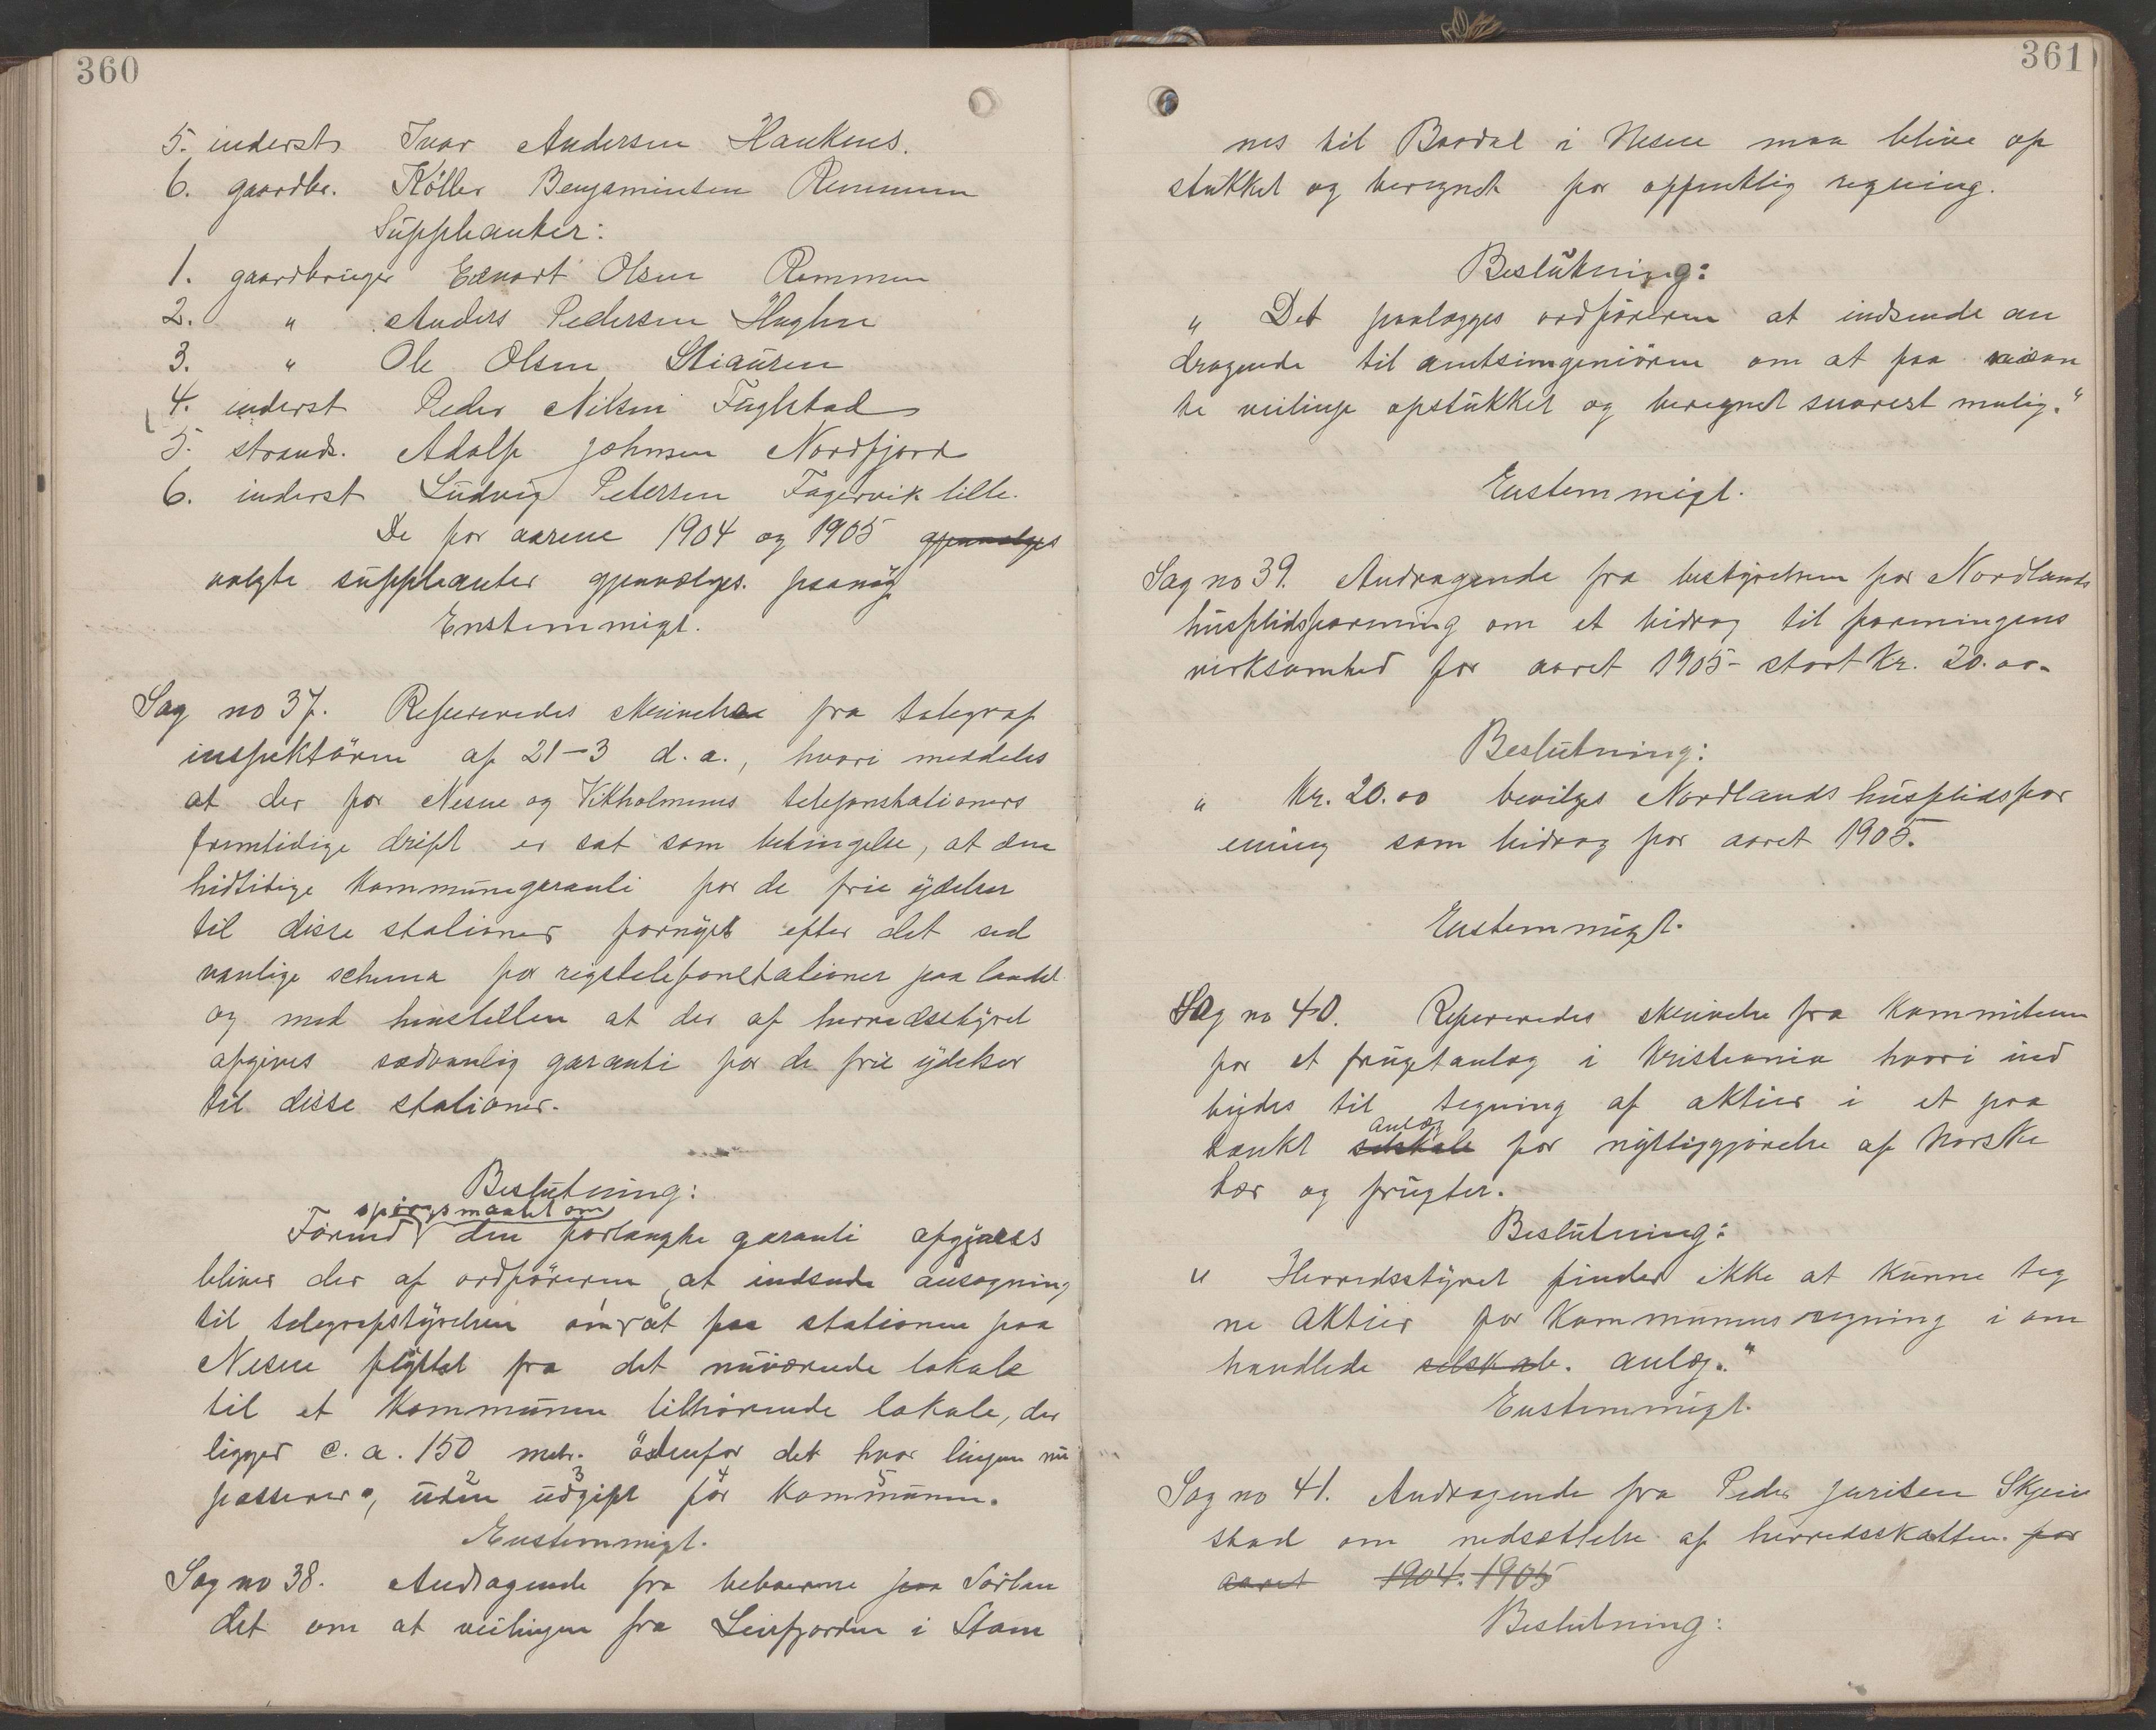 360
5. inderst Ivar Andersen Haukenes.
6. gaardbr. Køller Benjaminsen Remmen
Suppleanter:
1. gaardbruger Edvart Olsen Remmen
2. " Anders Pedersen Huglen
3. " Ole Olsen Stiauren
4. inderst Peder Nilsen Fuglstad
5. strands. Adolf Johnsen Nordfjord
6. inderst Ludvig Petersen Fagervik lille.
De for aarene 1904 og 1905 gjenvælges
valgte suppleanter gjenvælges. paany
Enstemmigt.
Sag no 37. Refereredes skrivelse fra telegraf
inspektøren af 21-3 d.a., hvori meddeles
at der for Nesne og Vikholmens telefonstationers
fremtidige drift er sat som betingelse, at den
hidtidige kommunegaranti for de frie ydelser
til disse stationer fornyet efter det sed
vanlige schema for rigstelefonstationer paa landet
og med henstillen at der af herredsstyret
afgives sædvanlig garanti for de frie ydelser
til disse stationer.
Beslutning:
spørgsmaalet om
Førend den forlangte garanti afgjøres
bliver der af ordføreren at indsende ansøgning
til telegrafstyrelsen om at faa stationen paa
Nesne flyttet fra det nuværende lokale
til et kommunen tilhørende lokale, der
ligger c. a. 150 metr. østenfor det hvor linjen nu
2 3 4 5
passerer, uden udgift for kommunen.
Enstemmigt.
Sag no 38. Andragende fra beboerne paa Sørlan
det om at veilinjen fra Leirfjorden i Stam
361
nes til Bardal i Nesne maa blive op
stukket og beregnet for offentlig regning.
Beslutning:
" Det paalægges ordføreren at indsende an
dragende til amtsingeniøren om at faa
te veilinje opstukket og beregnet snarest mulig."
Enstemmigt.
Sag no 39. Andragende fra bestyrelsen for Nordlands
husflidsforening om et bidrag til foreningens
virksomhed for aaret 1905 - stort Kr. 20.00.
Beslutning:
" Kr. 20.00 bevilges Nordlands husflidsfor
ening som bidrag for aaret 1905.
Enstemmigt.
Sag no 40. Refereredes skrivelse fra kommiteen
for et frugtanlæg i Kristiania hvori ind
bydes til tegning af aktier i et paa
anlæg
tænkt selskab for nyttiggjørelse af norske
bær og frugter.
Beslutning:
" Herredsstyret finder ikke at kunne teg
ne aktier for kommunens regning i om
handlede selskab. anlæg."
Enstemmigt.
Sag no 41. Andragende fra Peder Juritsen Skjein
stad om nedsættelse af herredsskatten. for
aaret 1904. 1905
Beslutning: